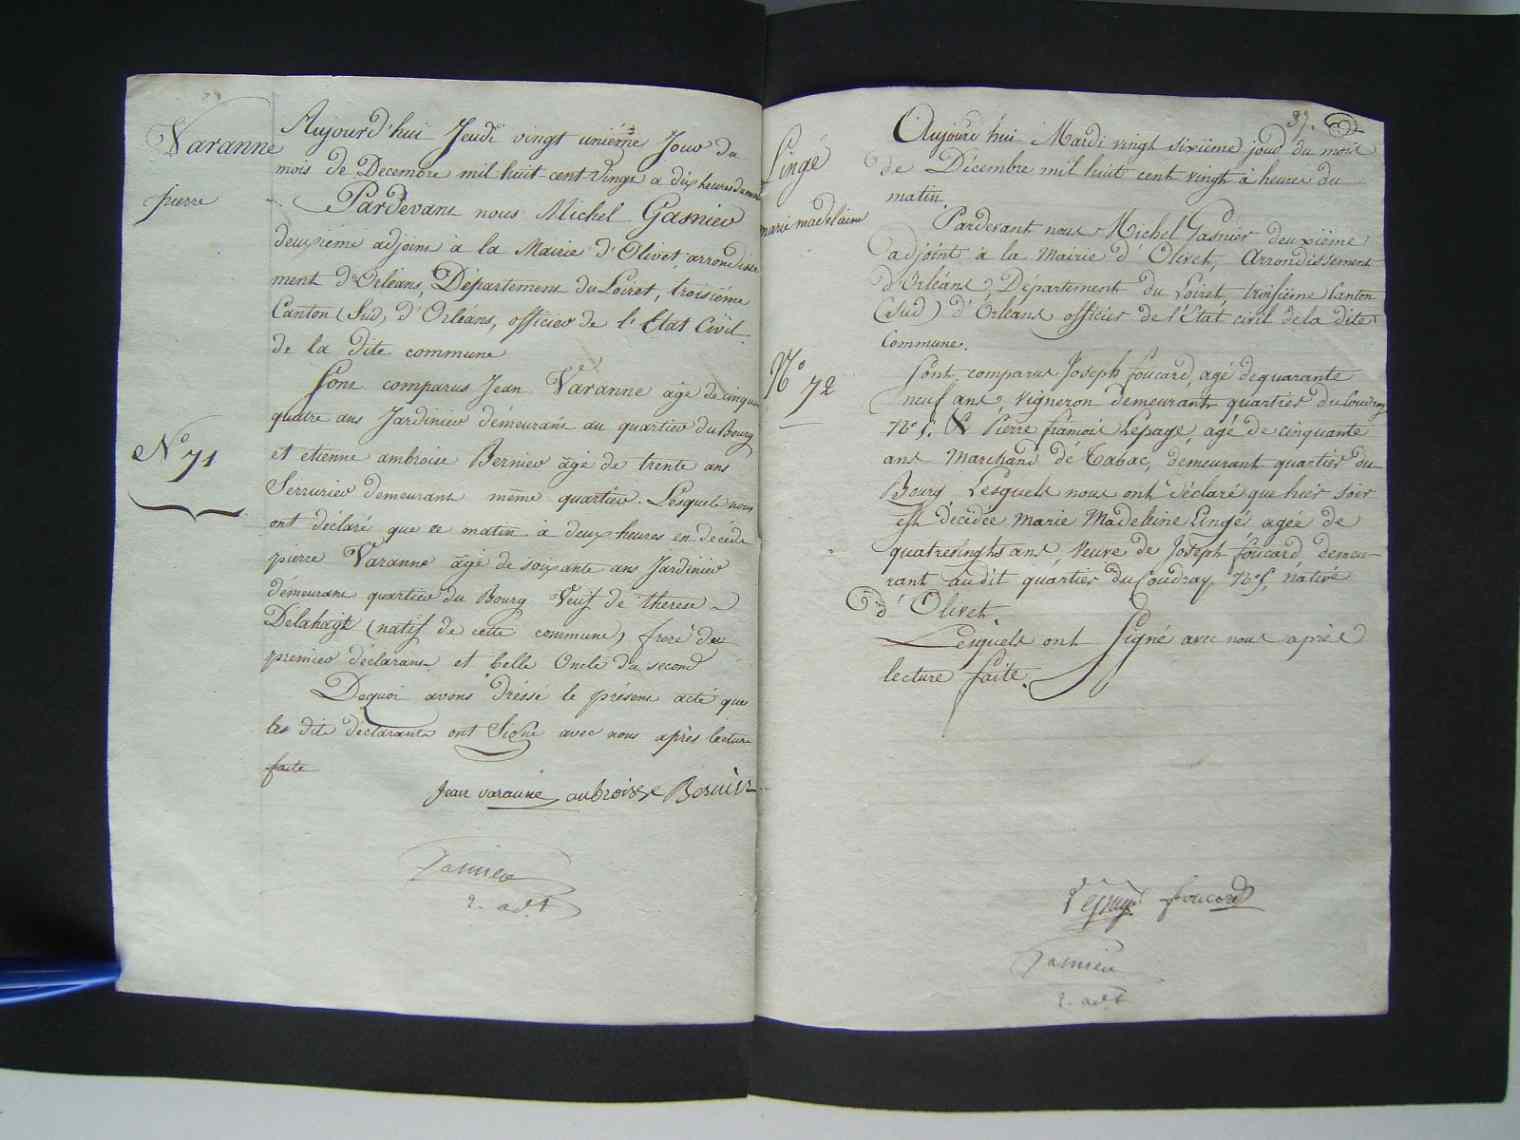 Varanne
pierre
N° 71
Aujourd'hui Jeudi vingt unième Jour du
mois de Decembre mil huit cent Vingt a dix heures du matin
Pardevant nous Michel Gasnier
deuxième adjoint à la Mairie d'Olivet, arrondisse
ment d'Orléans, Département du Loiret, troisième
Canton (Sud) d'Orléans, officier de l'Etat Civil
de la dite commune
Sont comparus Jean Varanne agé de cinquante
quatre ans Jardinier demeurant au quartier du Bourg
et etienne ambroise Bernier âgé de trente ans
Serrurier demeurant même quartier. Lesquels nous
ont déclaré que ce matin à deux heures est décédé
pierre Varanne âgé de soixante ans Jardinier
demeurant quartier du Bourg Veuf de therese
Delahaye (natif de cette commune) frere du
premier déclarant et belle Oncle du second
Dequoi avons dressé le présent acte que
les dits déclarants ont Signé avec nous après lecture
faite
Jean varanne aubroise Bernier
Gasnier
2. adt
37.
Lingé
marie madelaine
N° 72
Aujourd'hui Mardi vingt sixième jour du mois
de Décembre mil huit cent vingt à heures du
matin.
Pardevant nous Michel Gasnier deuxième
adjoint à la Mairie d'Olivet, Arrondissement
d'Orléans, Département du Loiret, troisième Canton
(Sud) d'Orléans officier de l'Etat civil de la dite
Commune.
Sont comparus Joseph foucard, agé de quarante
neuf ans, vigneron demeurant quartier du Coudray
N° 5. & Pierre françois Lepage, agé de cinquante
ans Marchand de Tabac, demeurant quartier du
Bourg Lesquels nous ont déclaré que hier soir
est décédée Marie Madeleine Lingé, agée de
quatrevinghs ans Veuve de Joseph foucard demeu-
rant audit quartier du Coudray, N° 5, native
d'Olivet.
Lesquels ont Signé avec nous après
lecture faite.
Lepage foucard
Gasnier
2. adt